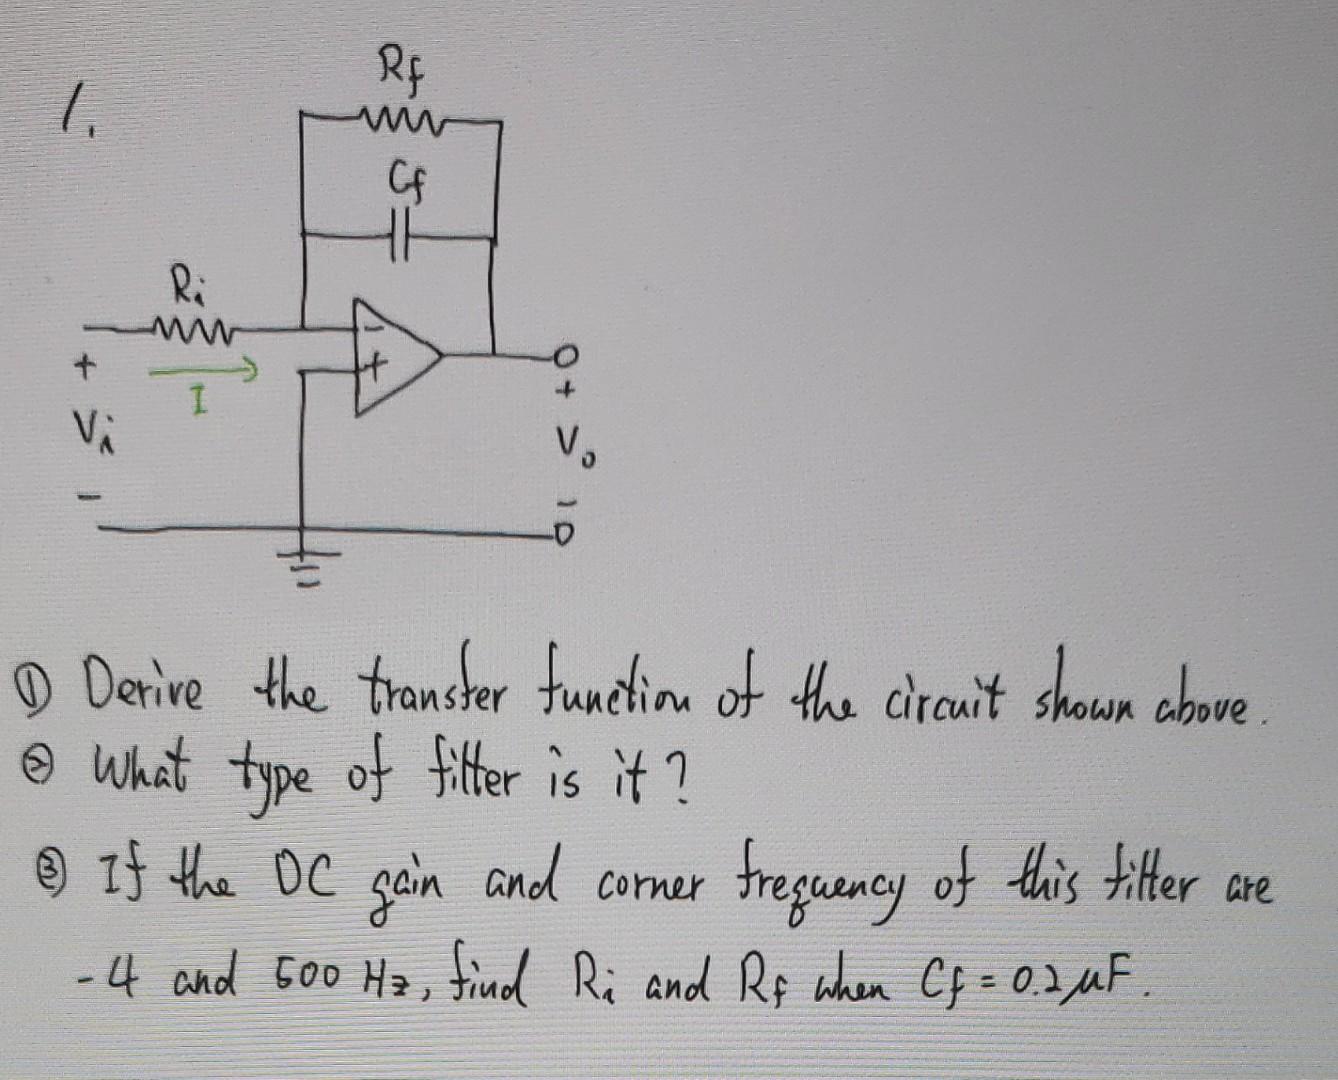 1.
Rf
Cf
Ri
-
+
+
I
Vi
-
+
Vo
-
① Derive the transfer function of the circuit shown above.
② What type of filter is it?
③ If the DC gain and corner frequency of this filter are
-4 and 500 Hz, find Ri and Rf when Cf = 0.2 μF.